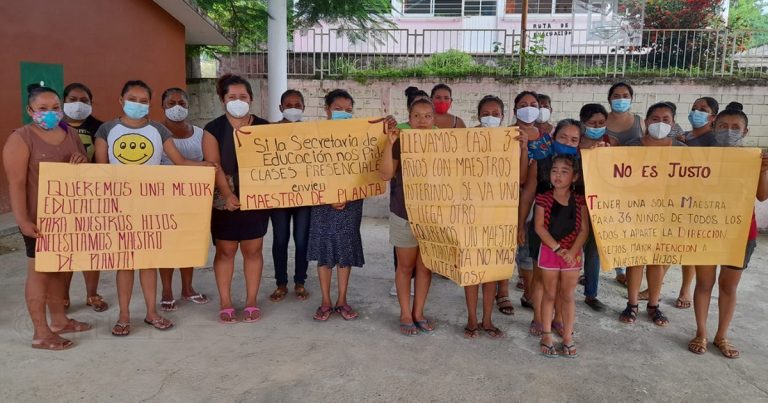 RUTA DE
EVACUACIÓN
QUEREMOS UNA MEJOR
EDUCACION.
PARA NUESTROS HIJOS
NECESITAMOS MAESTRO
DE PLANTA!
Si la Secretaria de
Educación nos Pide
CLASES PRESENCIALES
envieu
MAESTRO DE PLANTA
LLEVAMOS CASI
AÑOS CON MAESTROS
INTERINOS SE VA UNO
LLEGA OTRO
QUEREMOS UN MAESTRO
YA NO MAS
INTERINOS!
NO ES JUSTO
TENER UNA SOLA MAESTRA
PARA 36 NIÑOS DE TODOS LOS
Y APARTE LA DIRECCION
MAYOR ATENCION A
NUESTROS HIJOS.